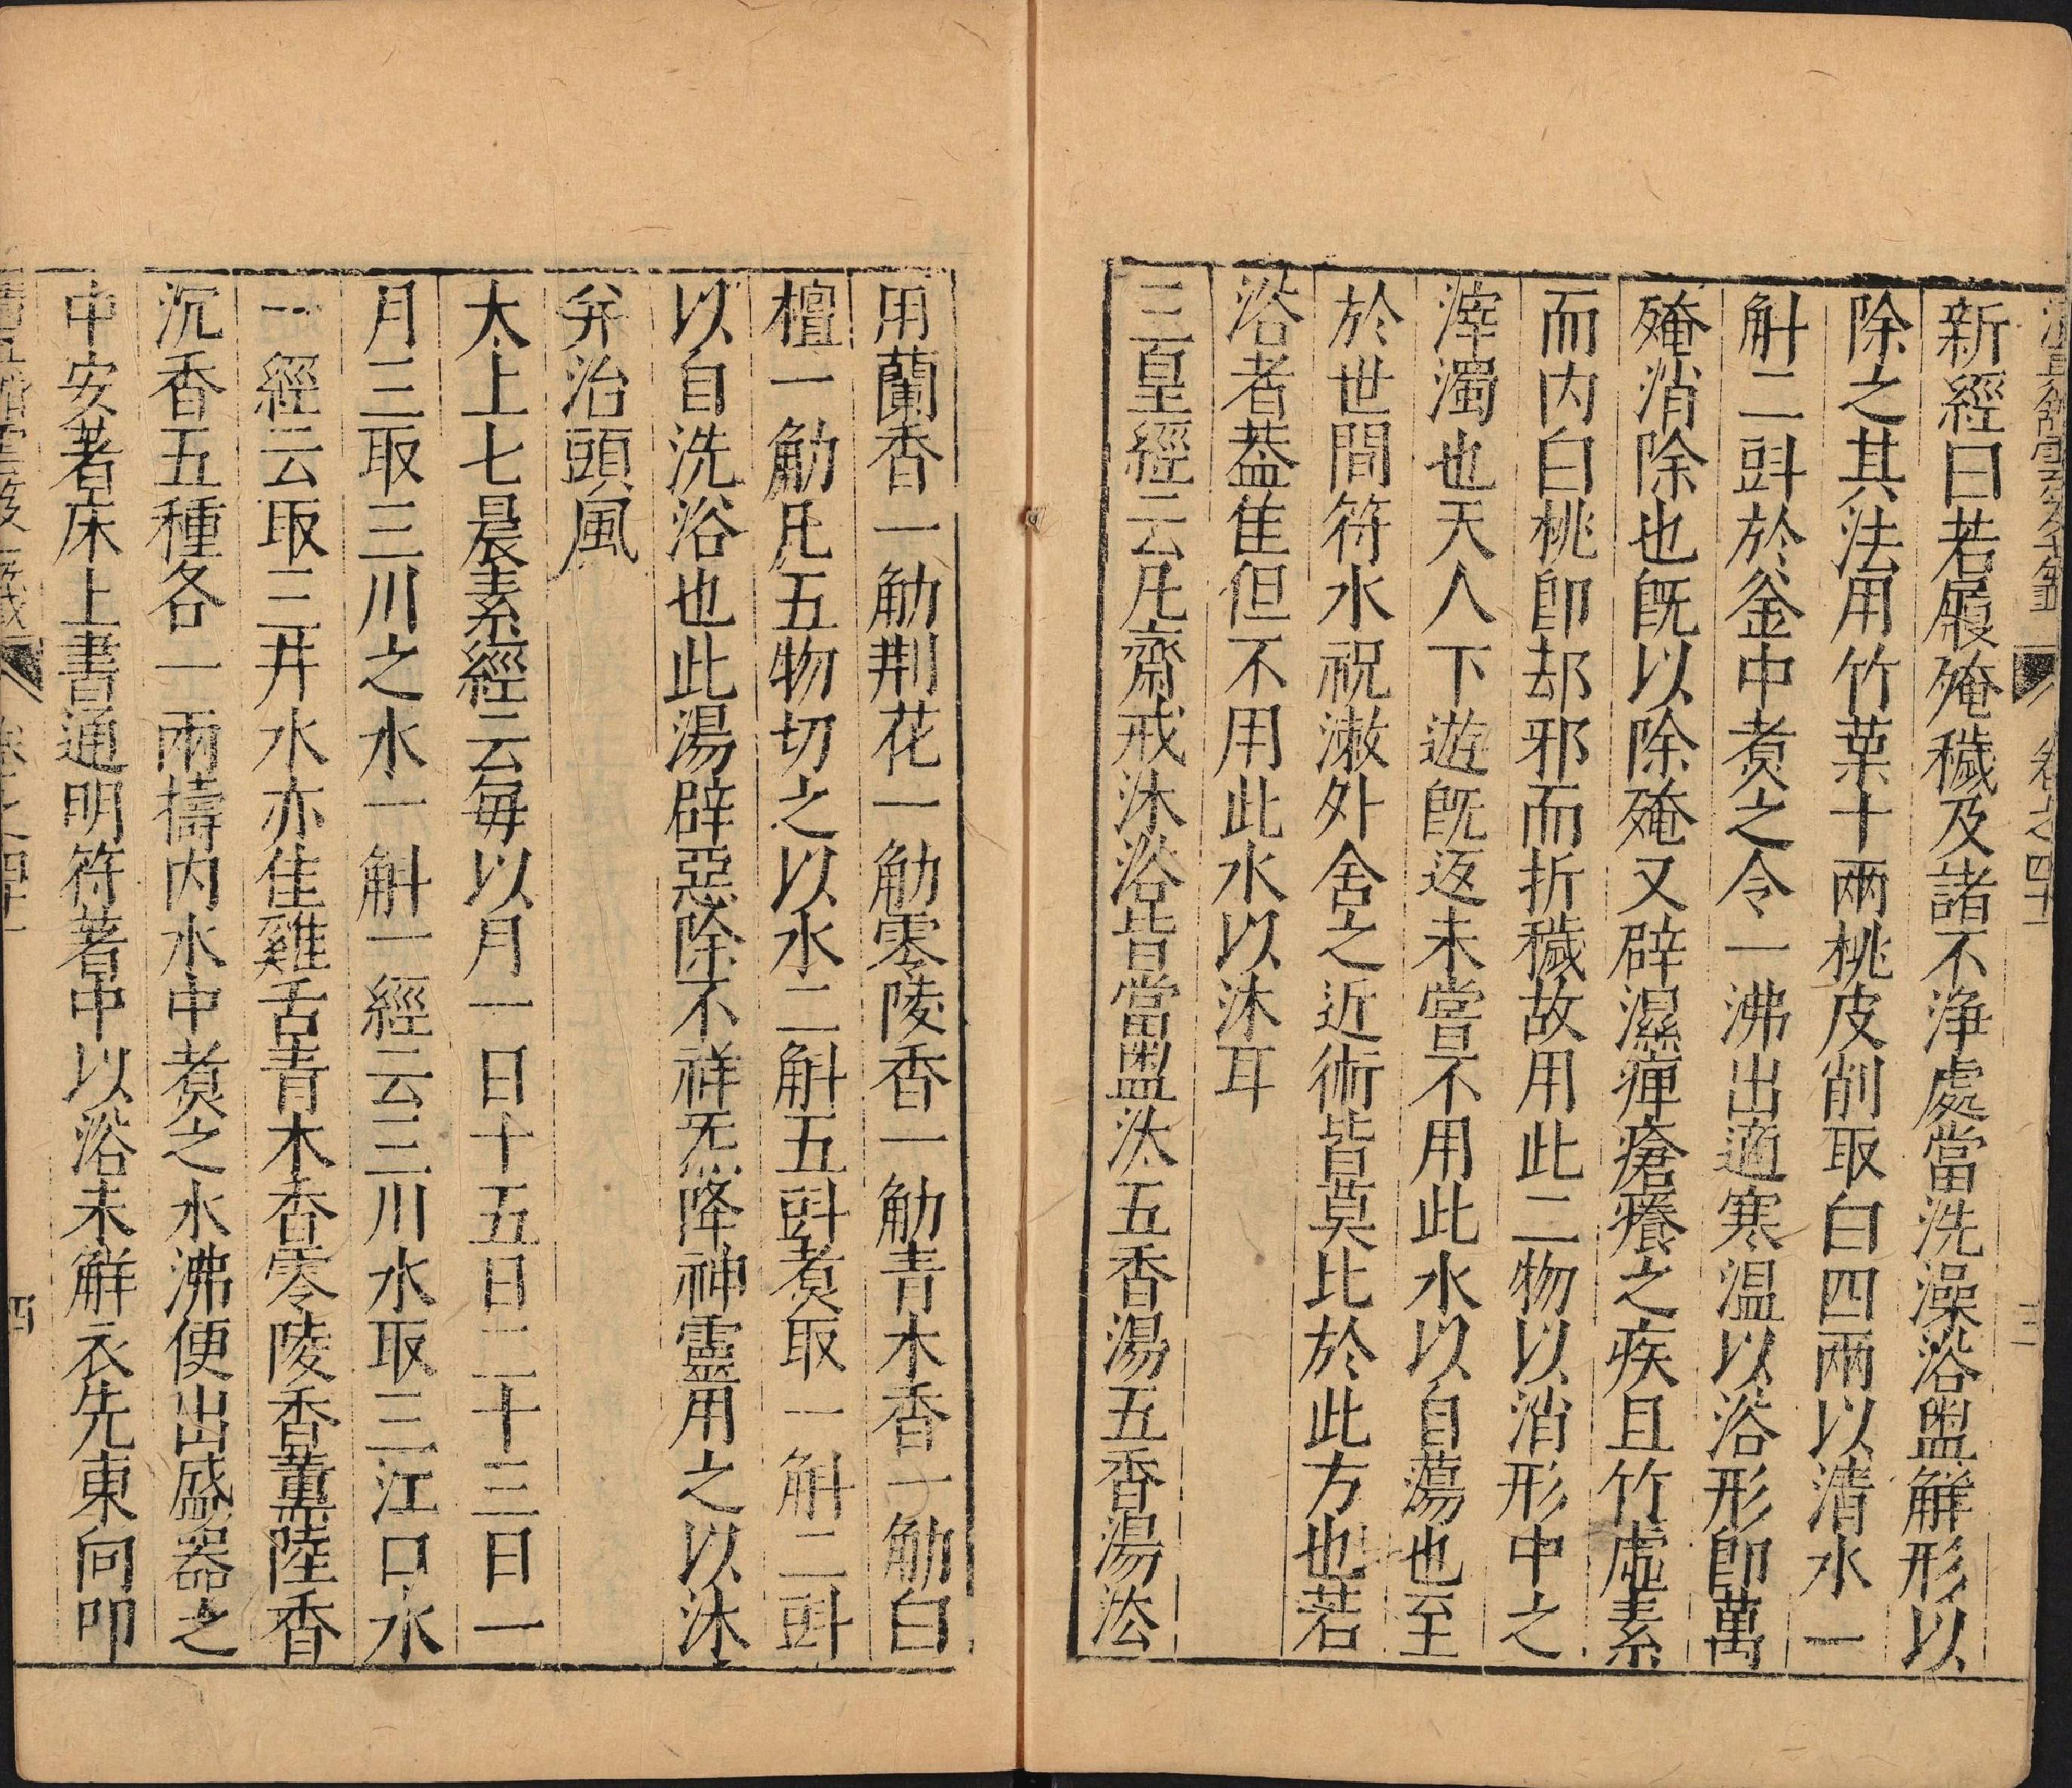 卷之四十一
三
新經曰若履殗穢及諸不淨處當洗澡浴盥解形以
除之其法用竹葉十兩桃皮削取白四兩以清水一
斛二㪷於釜中煑之令一沸出適寒溫以浴形即萬
殗消除也旣以除殗又辟濕痺瘡癢之疾且竹虛素
而内白桃即却邪而折穢故用此二物以消形中之
滓濁也天人下遊旣返未嘗不用此水以自蕩也至
於世間符水祝漱外舍之近術皆莫比於此方也若
浴者葢佳但不用此水以沐耳
三皇經云凡齋戒沐浴皆當盥汰五香湯五香湯法
用蘭香一觔荆花一觔零陵香一觔青木香一觔白
檀一觔凡五物切之以水二斛五㪷煑取一斛二㪷
以自洗浴也此湯辟惡除不祥炁降神靈用之以沐
并治頭風
太上七晨素經云每以月一日十五日二十三日一
月三取三川之水一斛一經云三川水取三江口水
一經云取三井水亦佳雞舌青木香零陵香薰陸香
沉香五種各一兩擣内水中煑之水沸便出盛器之
中安著床上書通明符著中以浴未解衣先東向叩
四